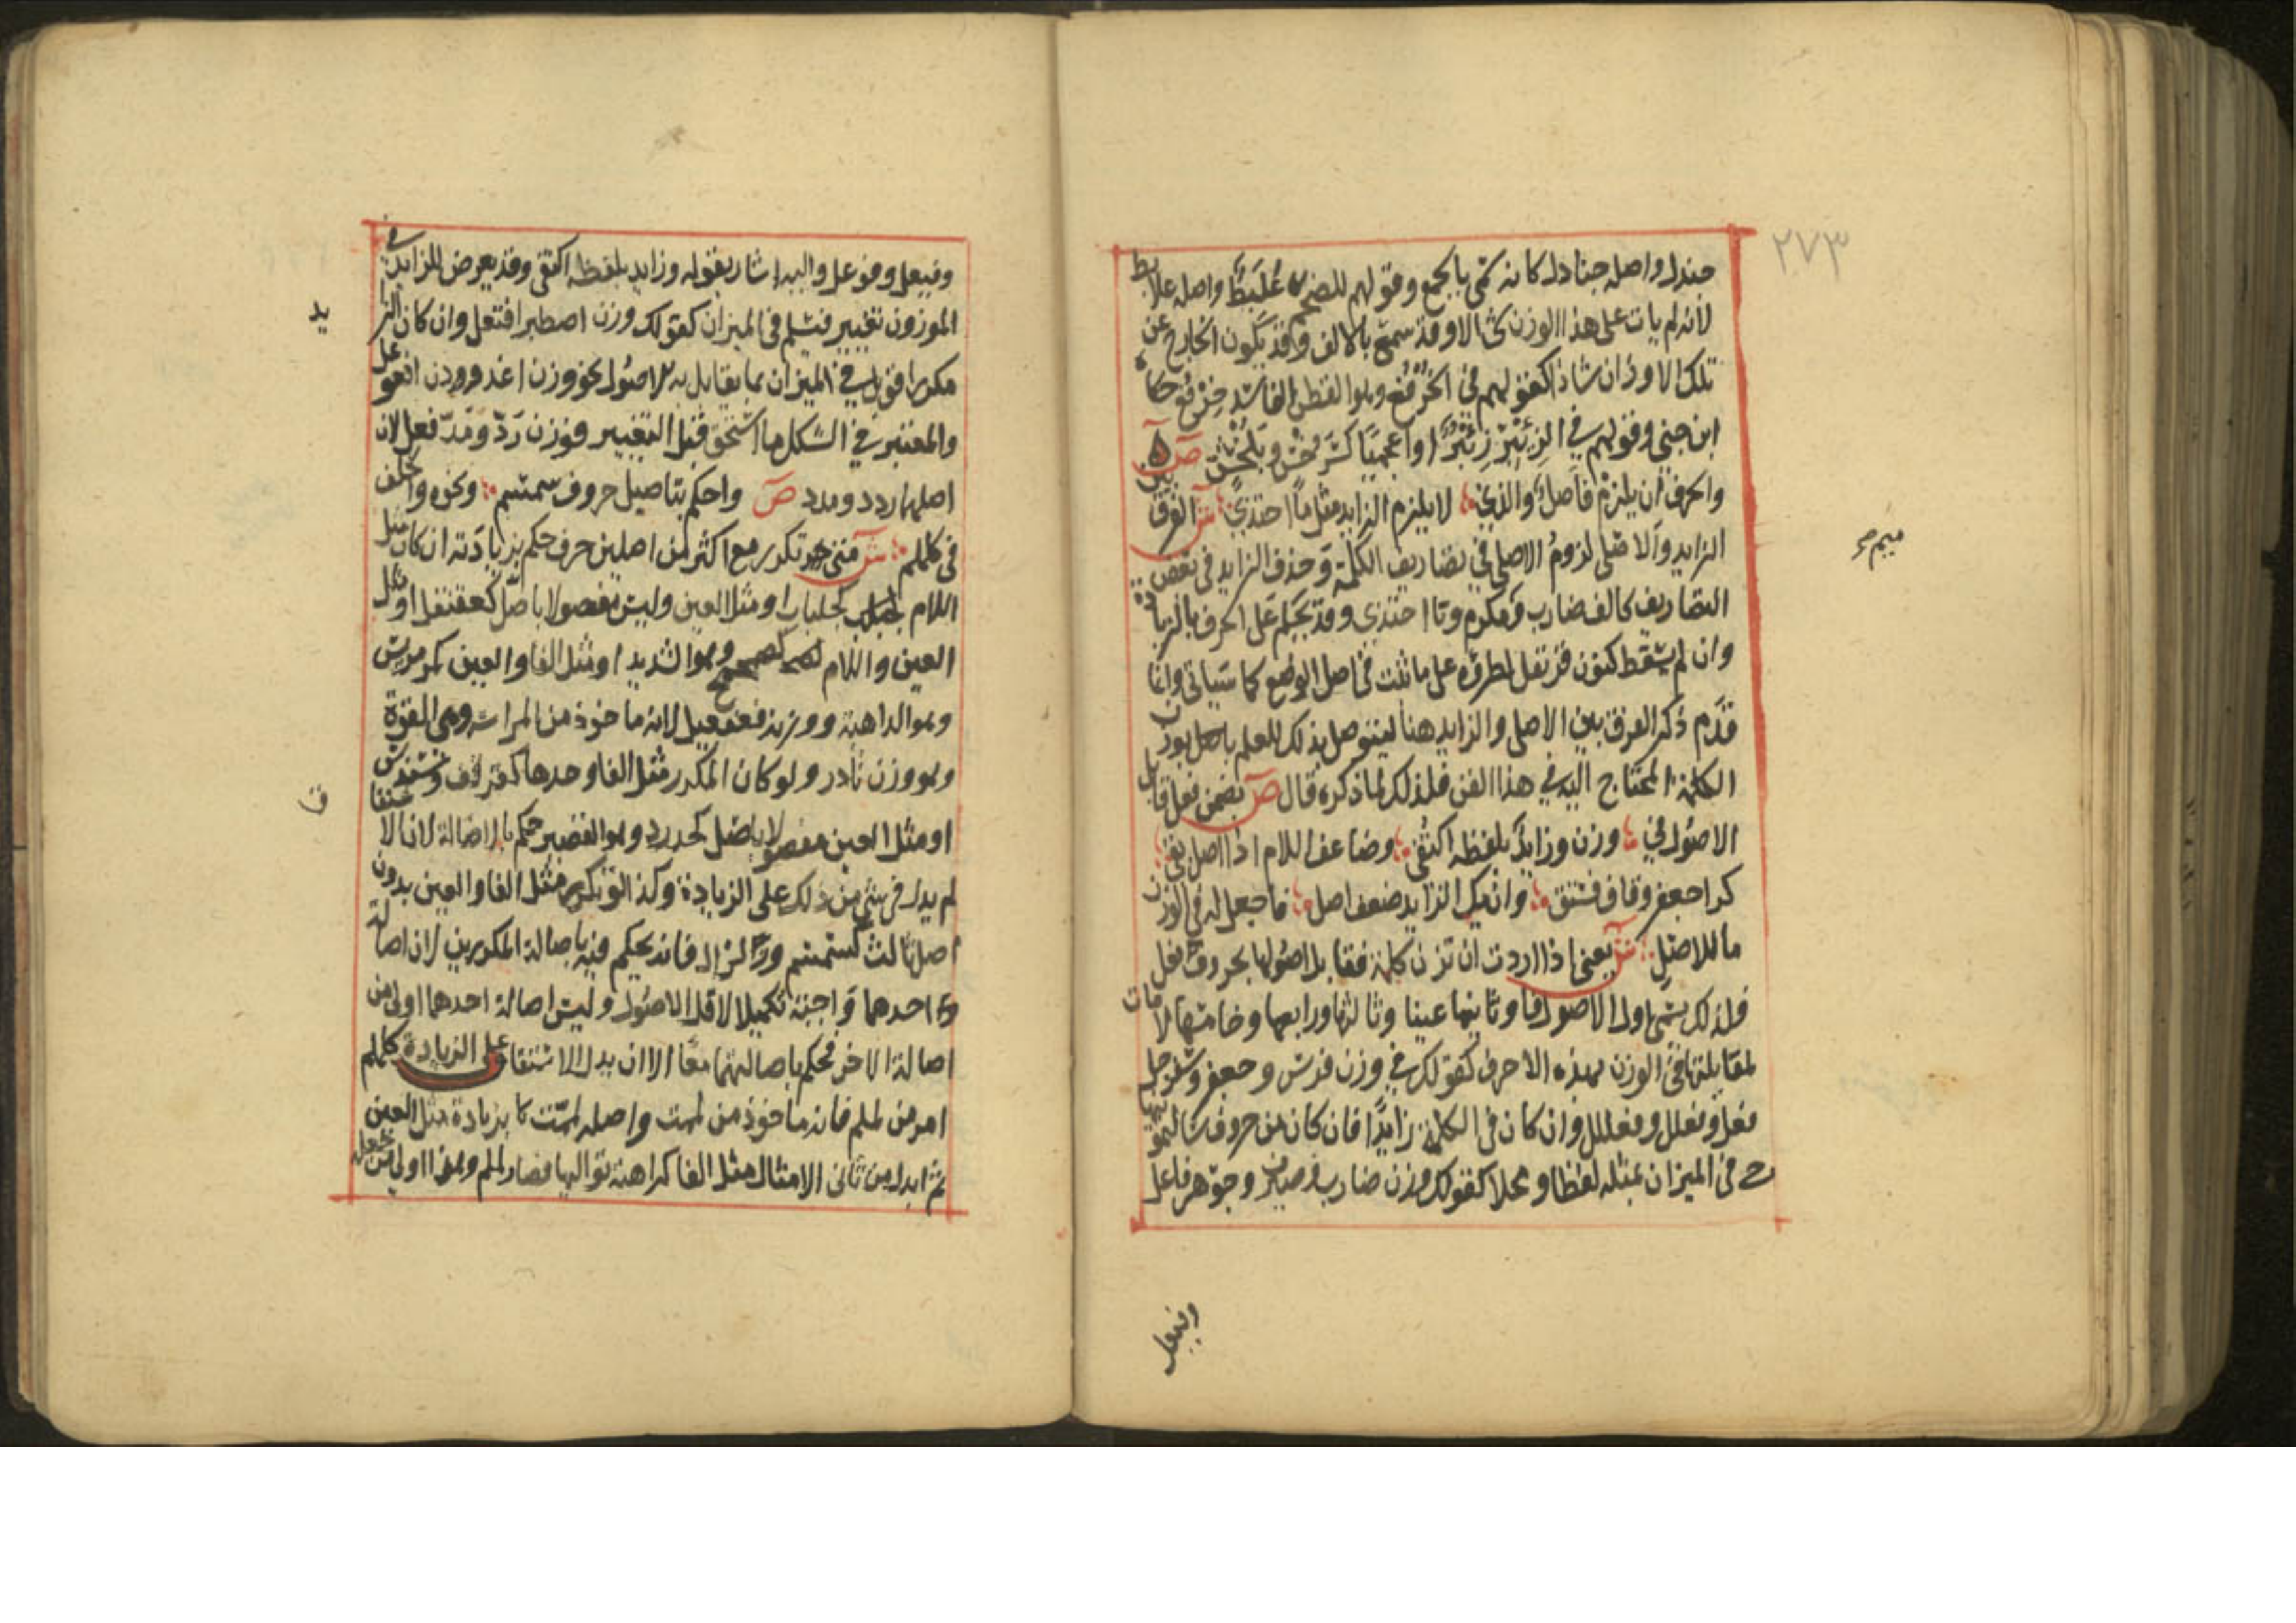 ٢٧٣
جندل واصله جنادل كانه سمى بالجمع وقولهم للضخم عُلَبِطٌ واصله علابط
لانه لم يات على هذا الوزن شى الا وقد سمع بالالف وقد يكون الخارج عن
تلك الاوزان شاذا كقولهم فى الخُرْفُع وهو القطن الفاسد خِرْفُع حكاه
ابن جنى وقولهم في الزِئْبِرْ زِئْبُرٌ او اعجميًا كسَرَخْس وبَلَخْش صۤ
والحرف ان يلزمْ فأصلٌ والذي ؞ لا يلزم الزايد مثل تا احتذيَ شۤ الفرق بين
الزايد والاصلى لزومُ الاصلى فى تصاريف الكلمة وحذف الزايد فى بعض
التصاريف كالف ضارب وميم مكرم وتا احتذى وقد يحكم على الحرف بالزيادة
وان لم يسقط كنون قرنفل لطروّه على ما ثبت فى اصل الوضع كما سياتى وانما
قدّم ذكر الفرق بين الاصلى والزايد هنا ليتوصل بذلك للعلم باصل بوزن
الكلمة المحتاج اليه في هذا الفن فلذلك لما ذكره قال صۤ بضمن فعل قابل
الاصُول في ؞ وزن وزايدٌ بلفظه اكتُفى ؞ وضاعف اللام اذا اصل بقى ؞
كرا جعفر وقاف فستق ؞ وان يك الزايد ضعف اصل ؞ فاجعل له فى الوزن
ما للاصل ؞ شۤ يعنى اذا اردت ان تزن كلمة فقابل اصولها بحروف فعل
فلذلك يسمى اول الاصول فا وثانيها عينا وثالثها ورابعها وخامسها لامات
لمقابلتها فى الوزن بهذه الاحرف كقولك في وزن فرس وجعفر وسفرجل
فعل وفعلل وفعلل وان كان فى الكلمة زايدًا فان كان من حروف سالتمونيها
جى فى الميزان بمثله لفظا ومحلا كقولك وزن ضارب وصيرف وجوهر فاعل
وفيعل
ميم مر
وفيعل وفوعل واليه اشار بقوله وزايد بلفظه اكتفى وقد يعرض للزايد فى
الموزون تغيير فيسلم فى الميزان كقولك وزن اصطبر افتعل وان كان الزايد
مكررا قوبل في الميزان بما يقابل به الاصُول نحو وزن اغدودن افعوعل
والمعتبر في الشكل ما استحق قبل التغيير فوزن رَدّ ومَدّ فعل لان
اصلها ردد ومدد صۤ واحكم بتاصيل حروف سمسم ؞ ونحوه والخلف
فى كلملم ؞ شۤ متى تكرر مع اكثر من اصلين حرف حكم بزيادته ان كان مثل
اللام كجلباب او مثل العين وليس مفصولا باصل كعقنقل او مثل
العين واللام كصمحمح وهو الشديد او مثل الفا والعين كمرمريس
وهو الداهية ووزنه فعفعيل لانه ماخوذ من المراسة وهى القوة
وهو وزن نادر ولو كان المكرر مثل الفا وحدها كقرقف وسندس
او مثل العين مفصولا باصل كحدرد وهو القصير حكم بالاصالة لان الاشتقاق
لم يدل فى شئ من ذلك على الزيادة وكذا لو تكرر مثل الفا والعين بدون
اصل ثالث كسمسم وزلزل فانه يحكم فيه باصالة المكررين لان اصالة
احدهما واجبة تكميلا لاقل الاصُول وليس اصالة احدهما اولى من
اصالة الاخر فحكم باصالتهما معًا الا ان يدل الاشتقاق على الزيادة كلملم
امر من لملم فانه ماخوذ من لممت واصله لممت كا بزيادة مثل العين
ثم ابدل من ثانى الامثال مثل الفا كراهة تواليها فصار لملم وهذا اولى من جعله
يد
ق